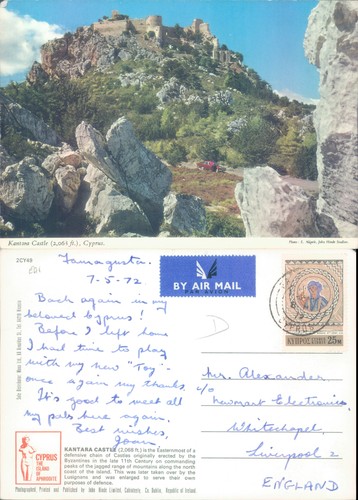 Kantara Castle (2,068 ft.), Cyprus.
Famagusta.
7-5-72
BY AIR MAIL
PAR AVION
ΚΥΠΡΟΣ
25M
2CY69
Back again in my
beloved Cyprus!
Before I left home
I had time to play
with my new "Toy" -
once again my thanks.
It's good to meet all
my pals here again.
Best wishes,
Joan.
D
Mr. Alexander
c/o
Electronics,
Whitechapel,
Liverpool 2
ENGLAND
CYPRUS
THE
ISLAND
OF
APHRODITE
KANTARA CASTLE (2,068 ft.) is the Easternmost of a
defensive chain of Castles originally erected by the
Byzantines in the late 11th Century on commanding
peaks of the jagged range of mountains along the north
coast of the Island. This was later taken over by the
Lusignans and was enlarged to serve their own
purposes of defence.
Photographed, Printed and Published by John Hinde Limited, Cabinteely, Co. Dublin, Republic of Ireland